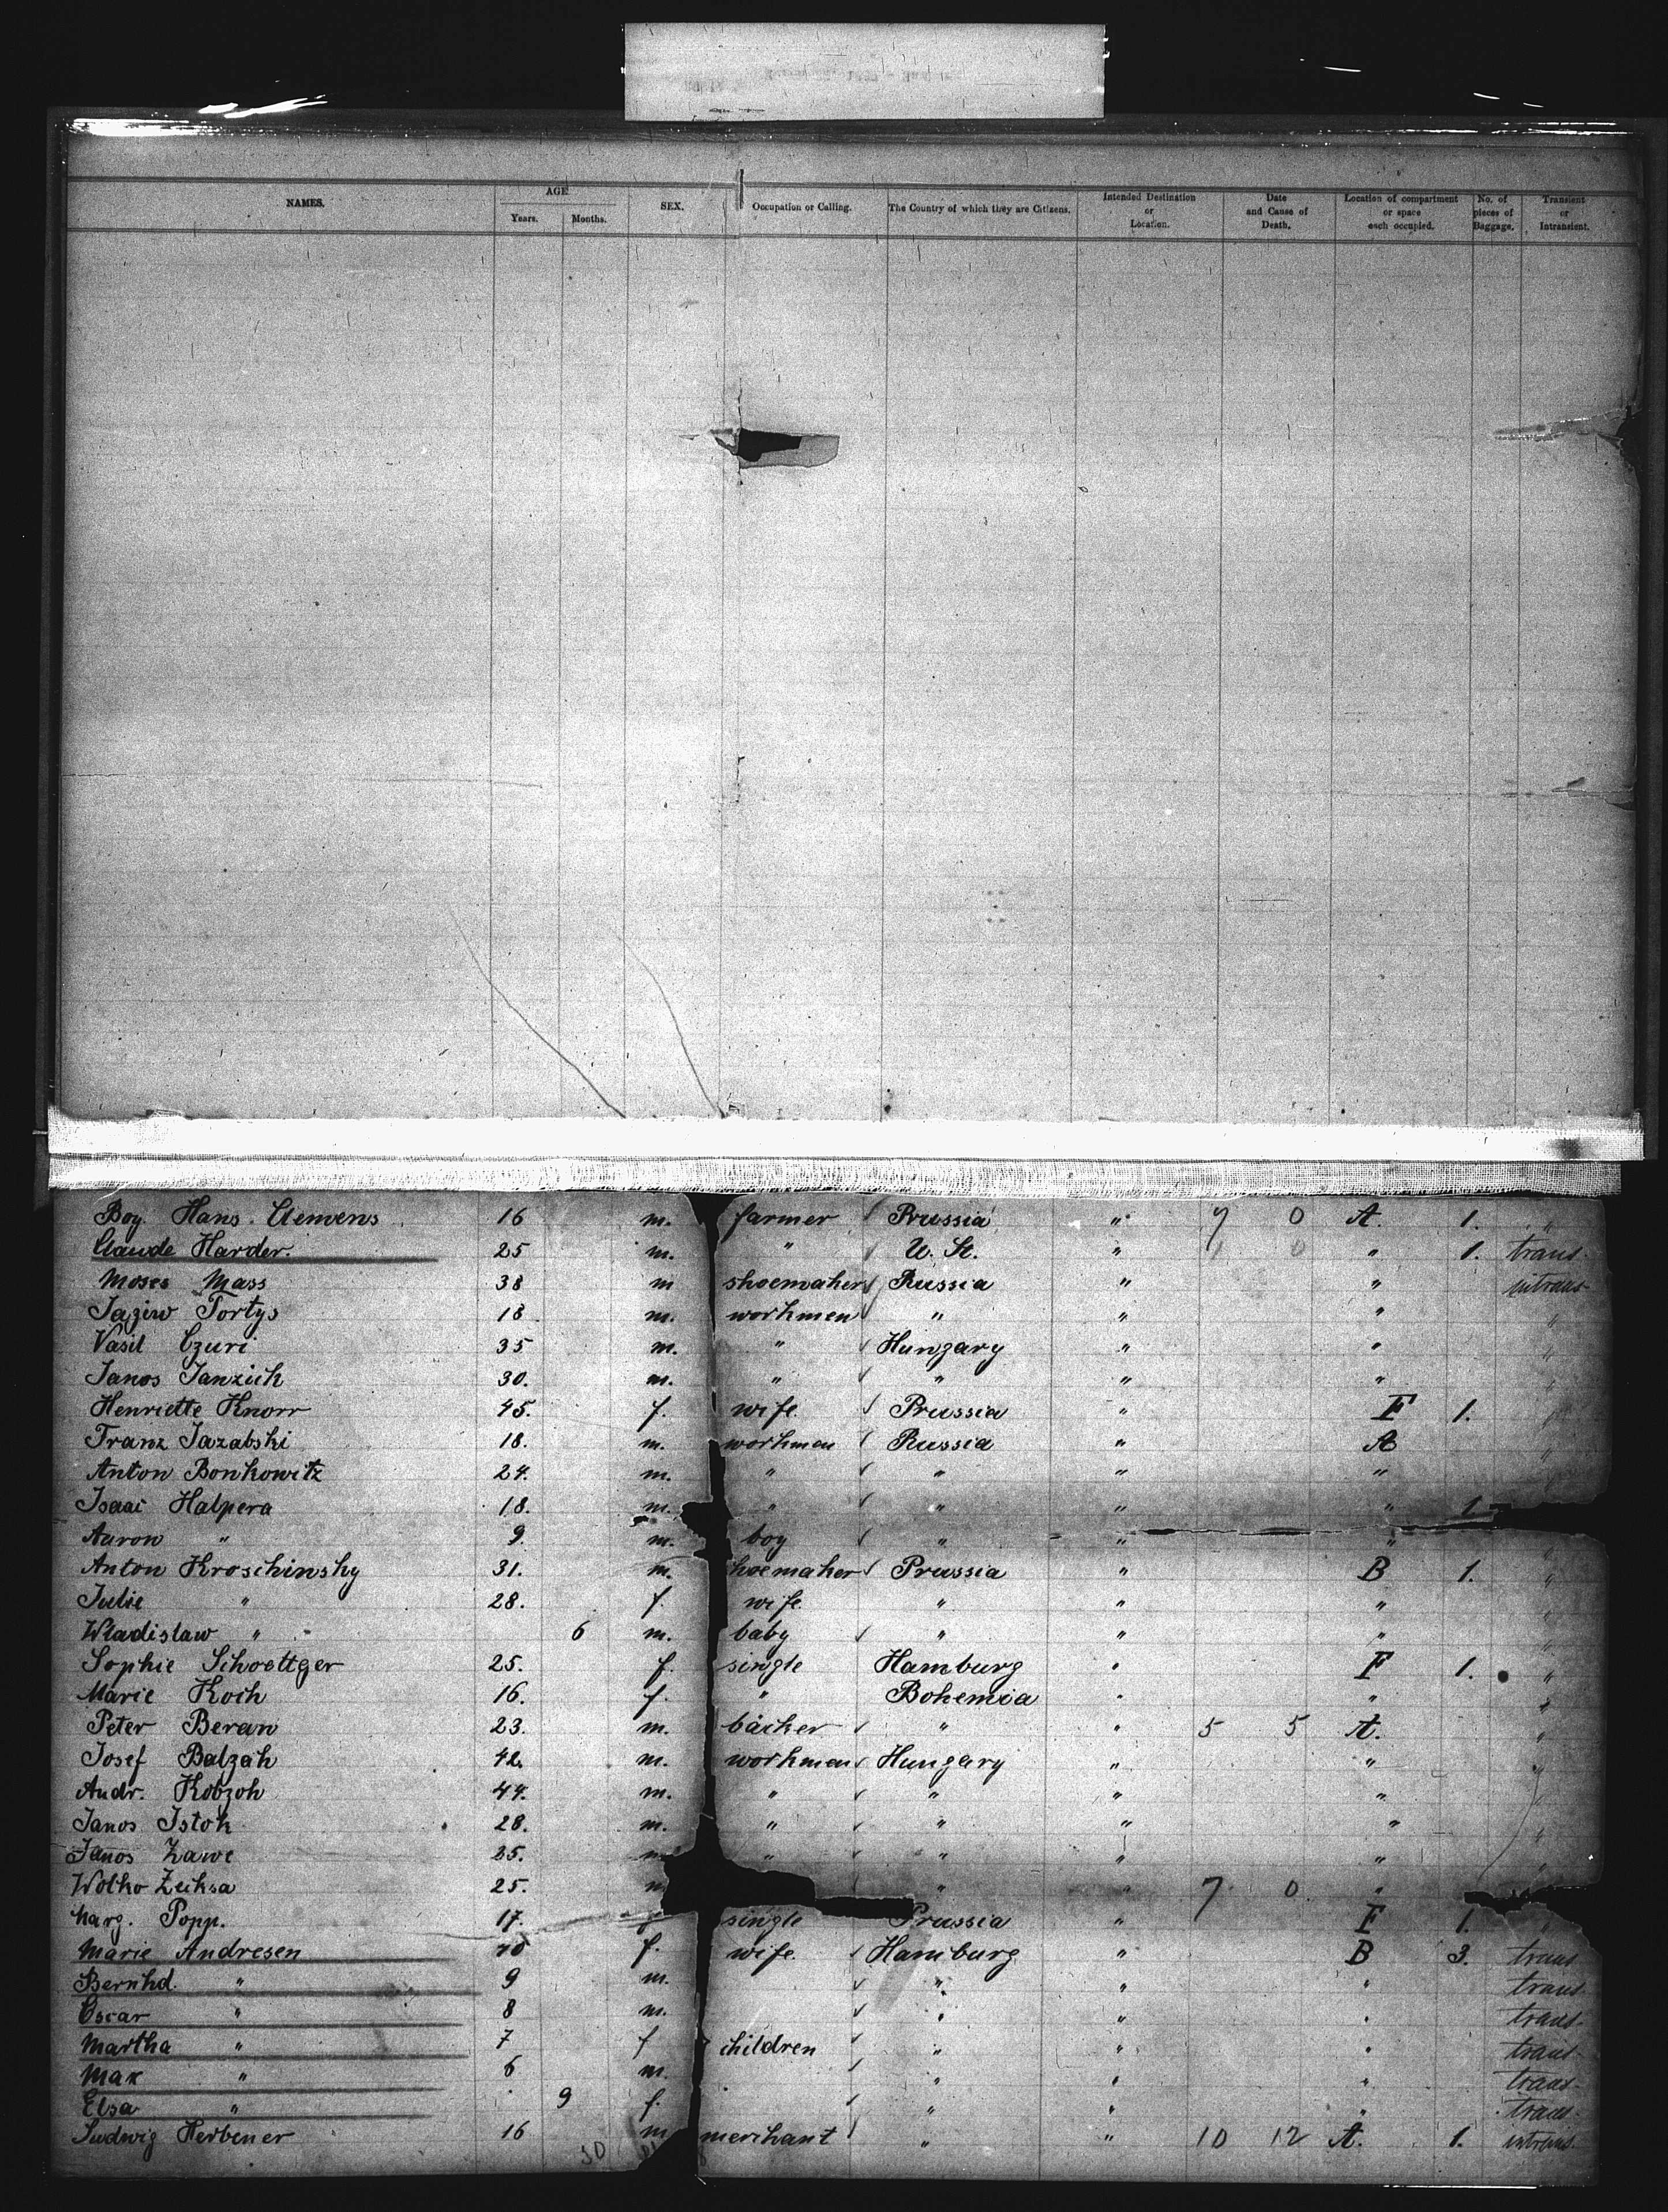 NAMES. AGE. Years. Months. SEX. Occupation or Calling. The Country of which they are Citizens. Intended Destination or Location. Date and Cause of Death. Location of compartment or space each occupied. No. of pieces of Baggage. Transient or Intransient.
Boy Hans Clemens 16 m. farmer Prussia " 7 0 A. 1. "
Claude Harder. 25 m. " U. St. " 0 " 1. trans-
Moses Mass 38 m shoemaker Russia " " intrans-
Tortys 18 m. workmen " " " "
Vasil Czuri 35 m. " Hungary " " "
Janos Janzich 30. m. " " " " "
Henriette Knorr 45. f. wife. Prussia " F 1. "
Franz Jazabski 18. m. workmen Russia " A "
Anton Bonkowitz 24. m. " " " " "
Isaac Halpera 18. m. " " " " 1.
Aaron " 9. m. boy " " " "
Anton Kroschinsky 31. m. hoemaker Prussia " B 1. "
Julie " 28. f. wife. " " " "
Wladislaw " 6 m. baby " " " "
Sophie Schoettger 25. f. single Hamburg " F 1. "
Marie Koch 16. f. " Bohemia " " "
Peter Beran 23. m. bäcker " " 5 5 A. "
Josef Balzak 42. m. workmen Hungary " " "
Andr. Kobzoh 44. m. " " " " "
Janos Istok 28. m. " " " " "
Janos Zawe 25. m " " " " "
Wolko Zeiksa 25. m " " 7 0 "
Marg. Popp. 17. f single Prussia " F 1. "
Marie Andresen 40 f. wife. Hamburg " B 3. trans
Bernhd. " 9 m. " " trans-
Oscar " 8 m. " " " trans-
Martha " 7 f children " " " trans-
Max " 6 m. " " " trans-
Elsa " 9 f. " " " trans-
Ludwig Herbener 16 m merchant " " 10 12 A. 1. intrans-
30